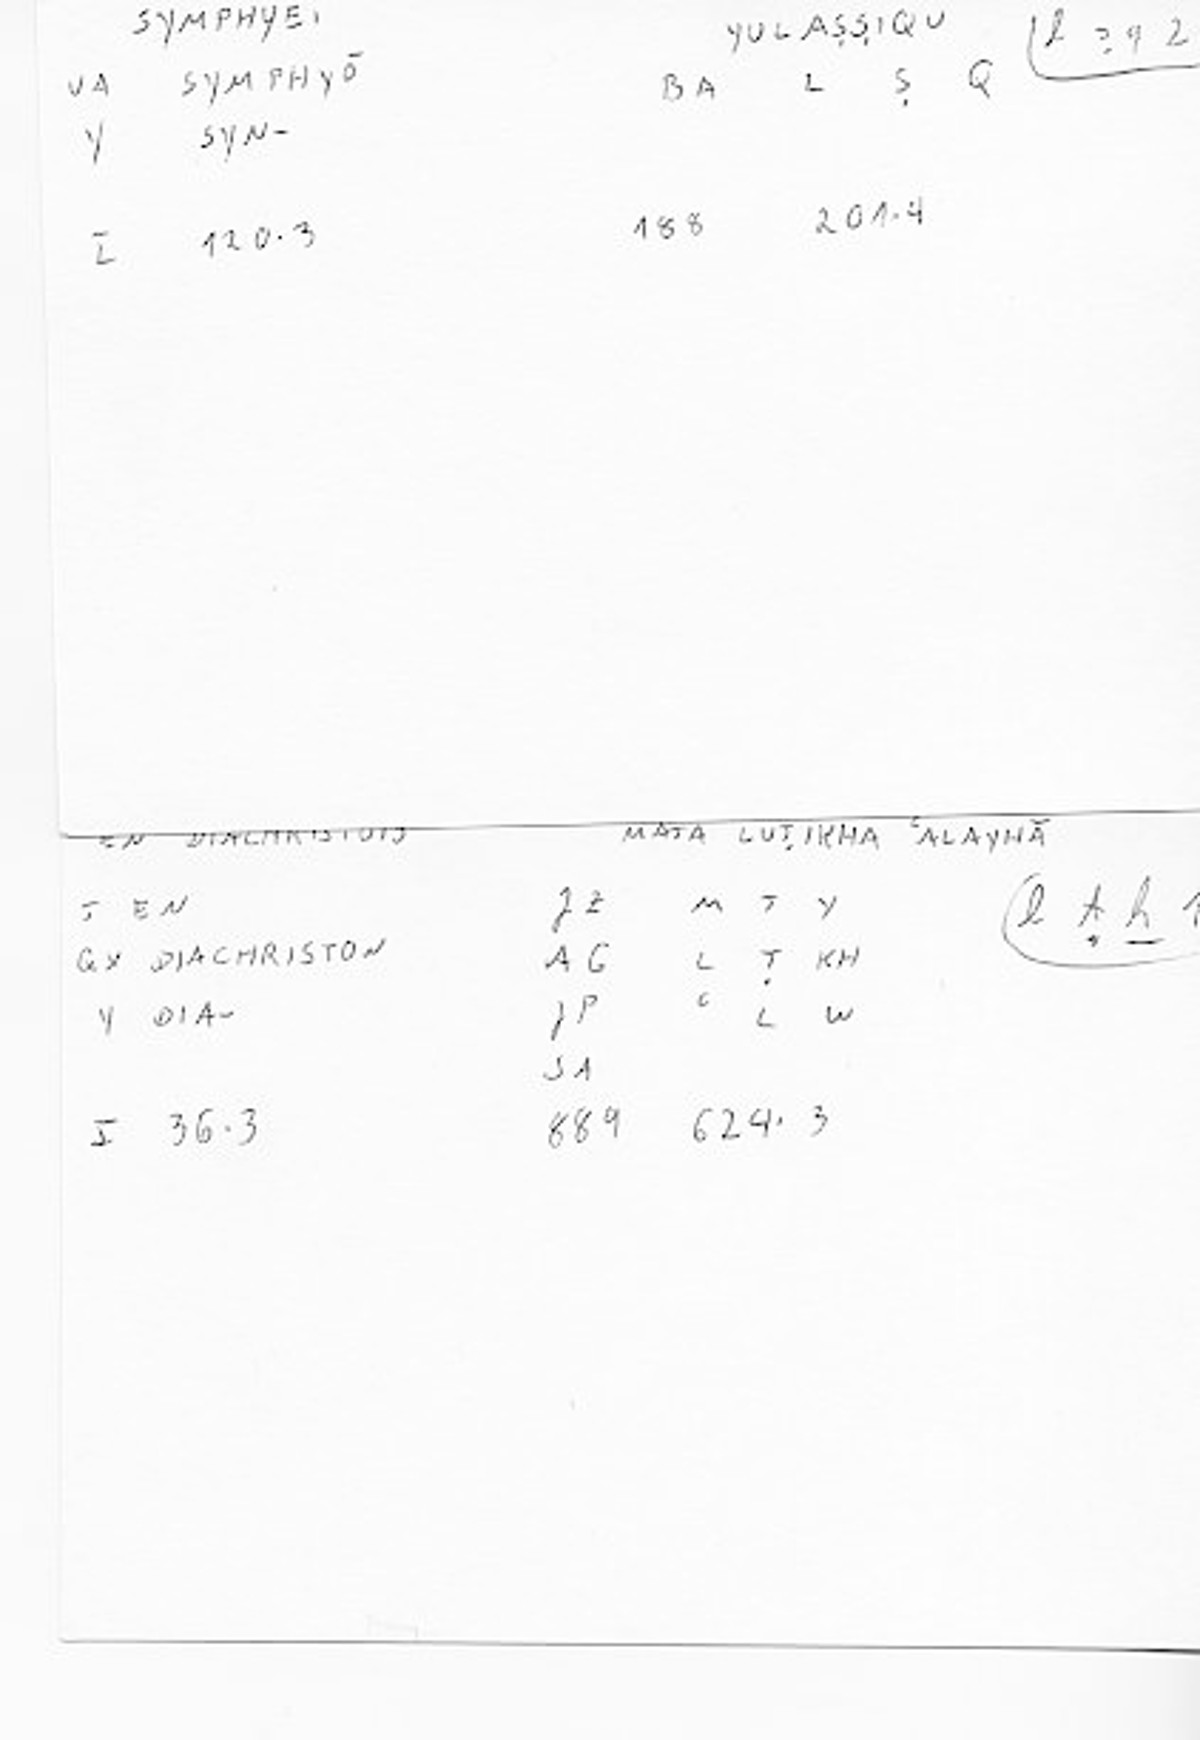 SYMPHYEI YULAṢṢIQU
VA SYMPHYŌ BA L Ṣ Q
Y SYN-
I 120.3 188 201.4
EN DIACHRISTOIS MATA LUṬIKHA ʿALAYHĀ
J EN JZ M T Y
GX DIACHRISTON AG L Ṭ KH
Y DIA- JP ʿ L W
JA
I 36.3 889 624.3